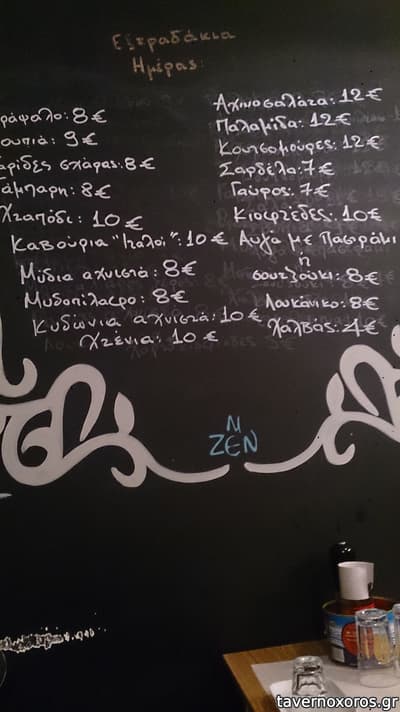 Εξτραδάκια
Ημέρας:
ράφαλο: 8€
ουπιά: 9€
αρίδες σχάρας: 8€
άμπαρη: 8€
Χταπόδι: 10€
Καβούρια "παλοί": 10€
Μύδια αχνιστά: 8€
Μυδοπίλαφο: 8€
Κυδώνια αχνιστά: 10€
Χτένια: 10€
Αχινοσαλάτα: 12€
Παλαμίδα: 12€
Κουτσομούρες: 12€
Σαρδέλα: 7€
Γαύρος: 7€
Κιοφτέδες: 10€
Αυγά με Παστράμι
ή
σουτζούκι: 8€
Λουκάνικο: 8€
Χαλβάς: 4€
N
ZEN
tavernoxoros.gr